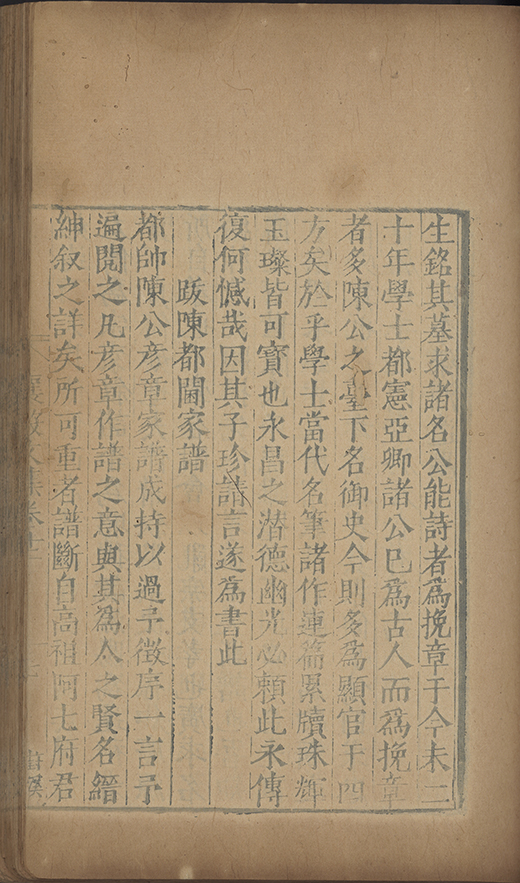 生銘其墓求諸名公能詩者爲挽章于今未二
十年學士都憲亞卿諸公已爲古人而爲挽章
者多陳公之臺下名御史今則多爲顯官于四
方矣於乎學士當代名筆諸作連篇累牘珠輝
玉璨皆可寶也永昌之潜德幽光必賴此永傳
復何憾哉因其子珍請言遂爲書此
跋陳都閫家譜
都帥陳公彦章家譜成持以過予徵序一言予
遍閱之凡彦章作譜之意與其爲人之賢名縉
紳叙之詳矣所可重者譜斷自高祖阿七府君